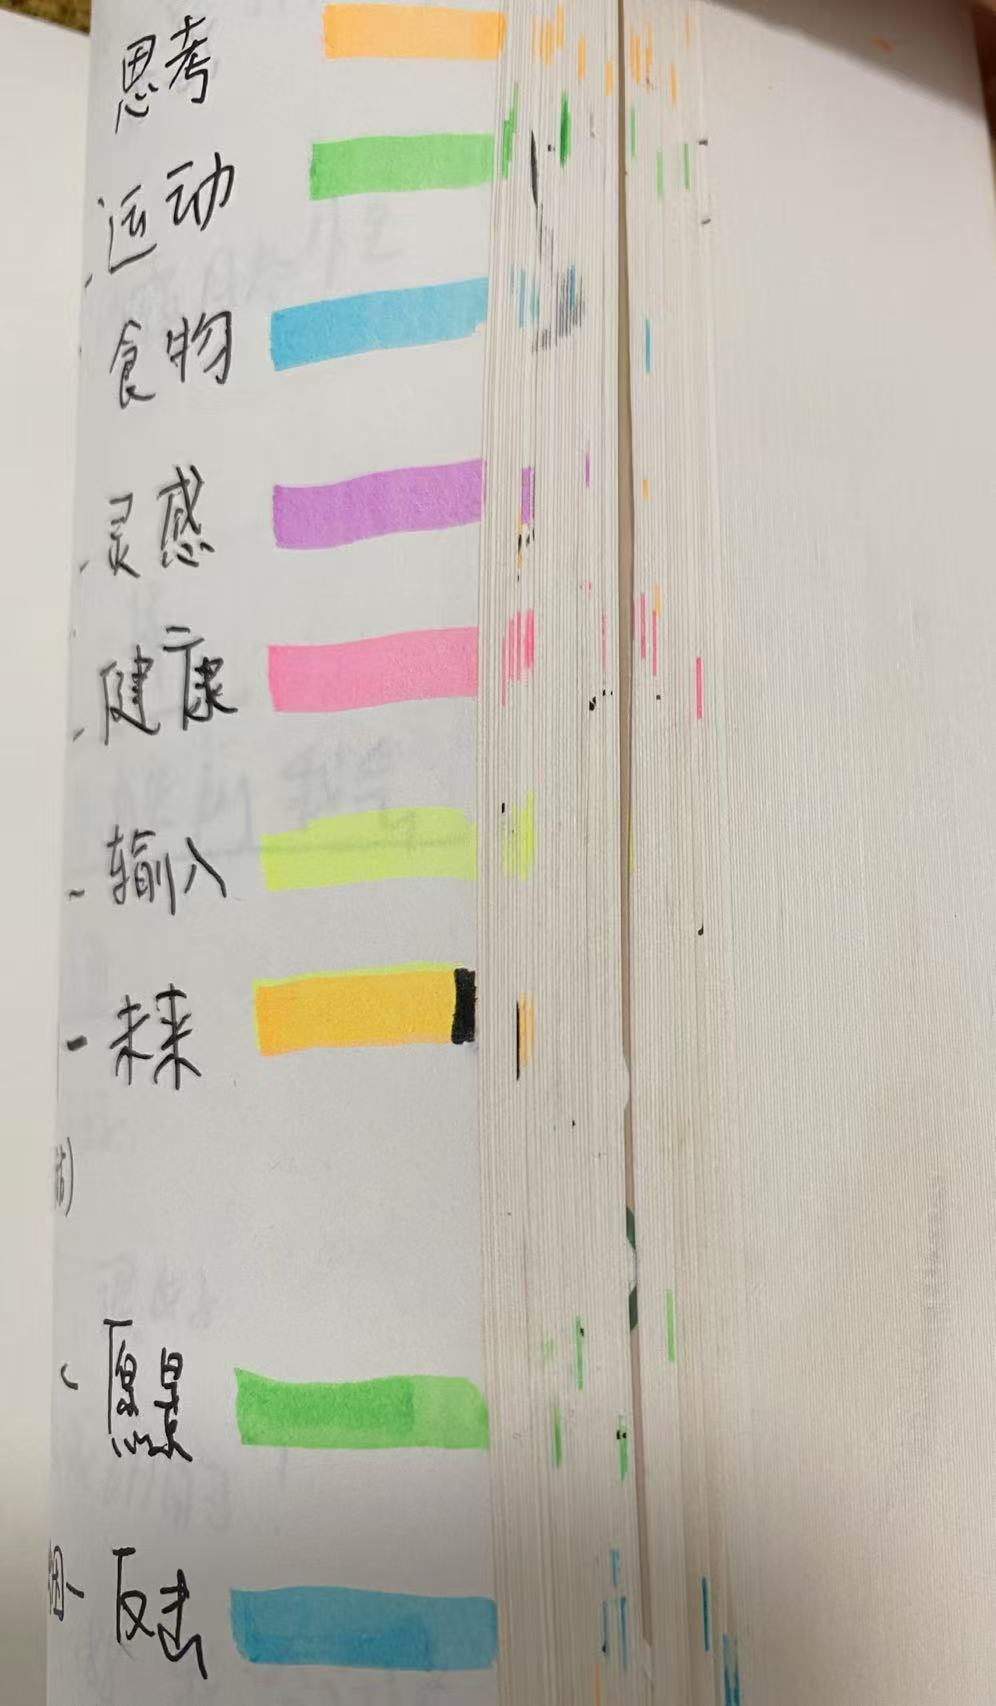 思考
运动
食物
灵感
健康
输入
未来
愿景
反击